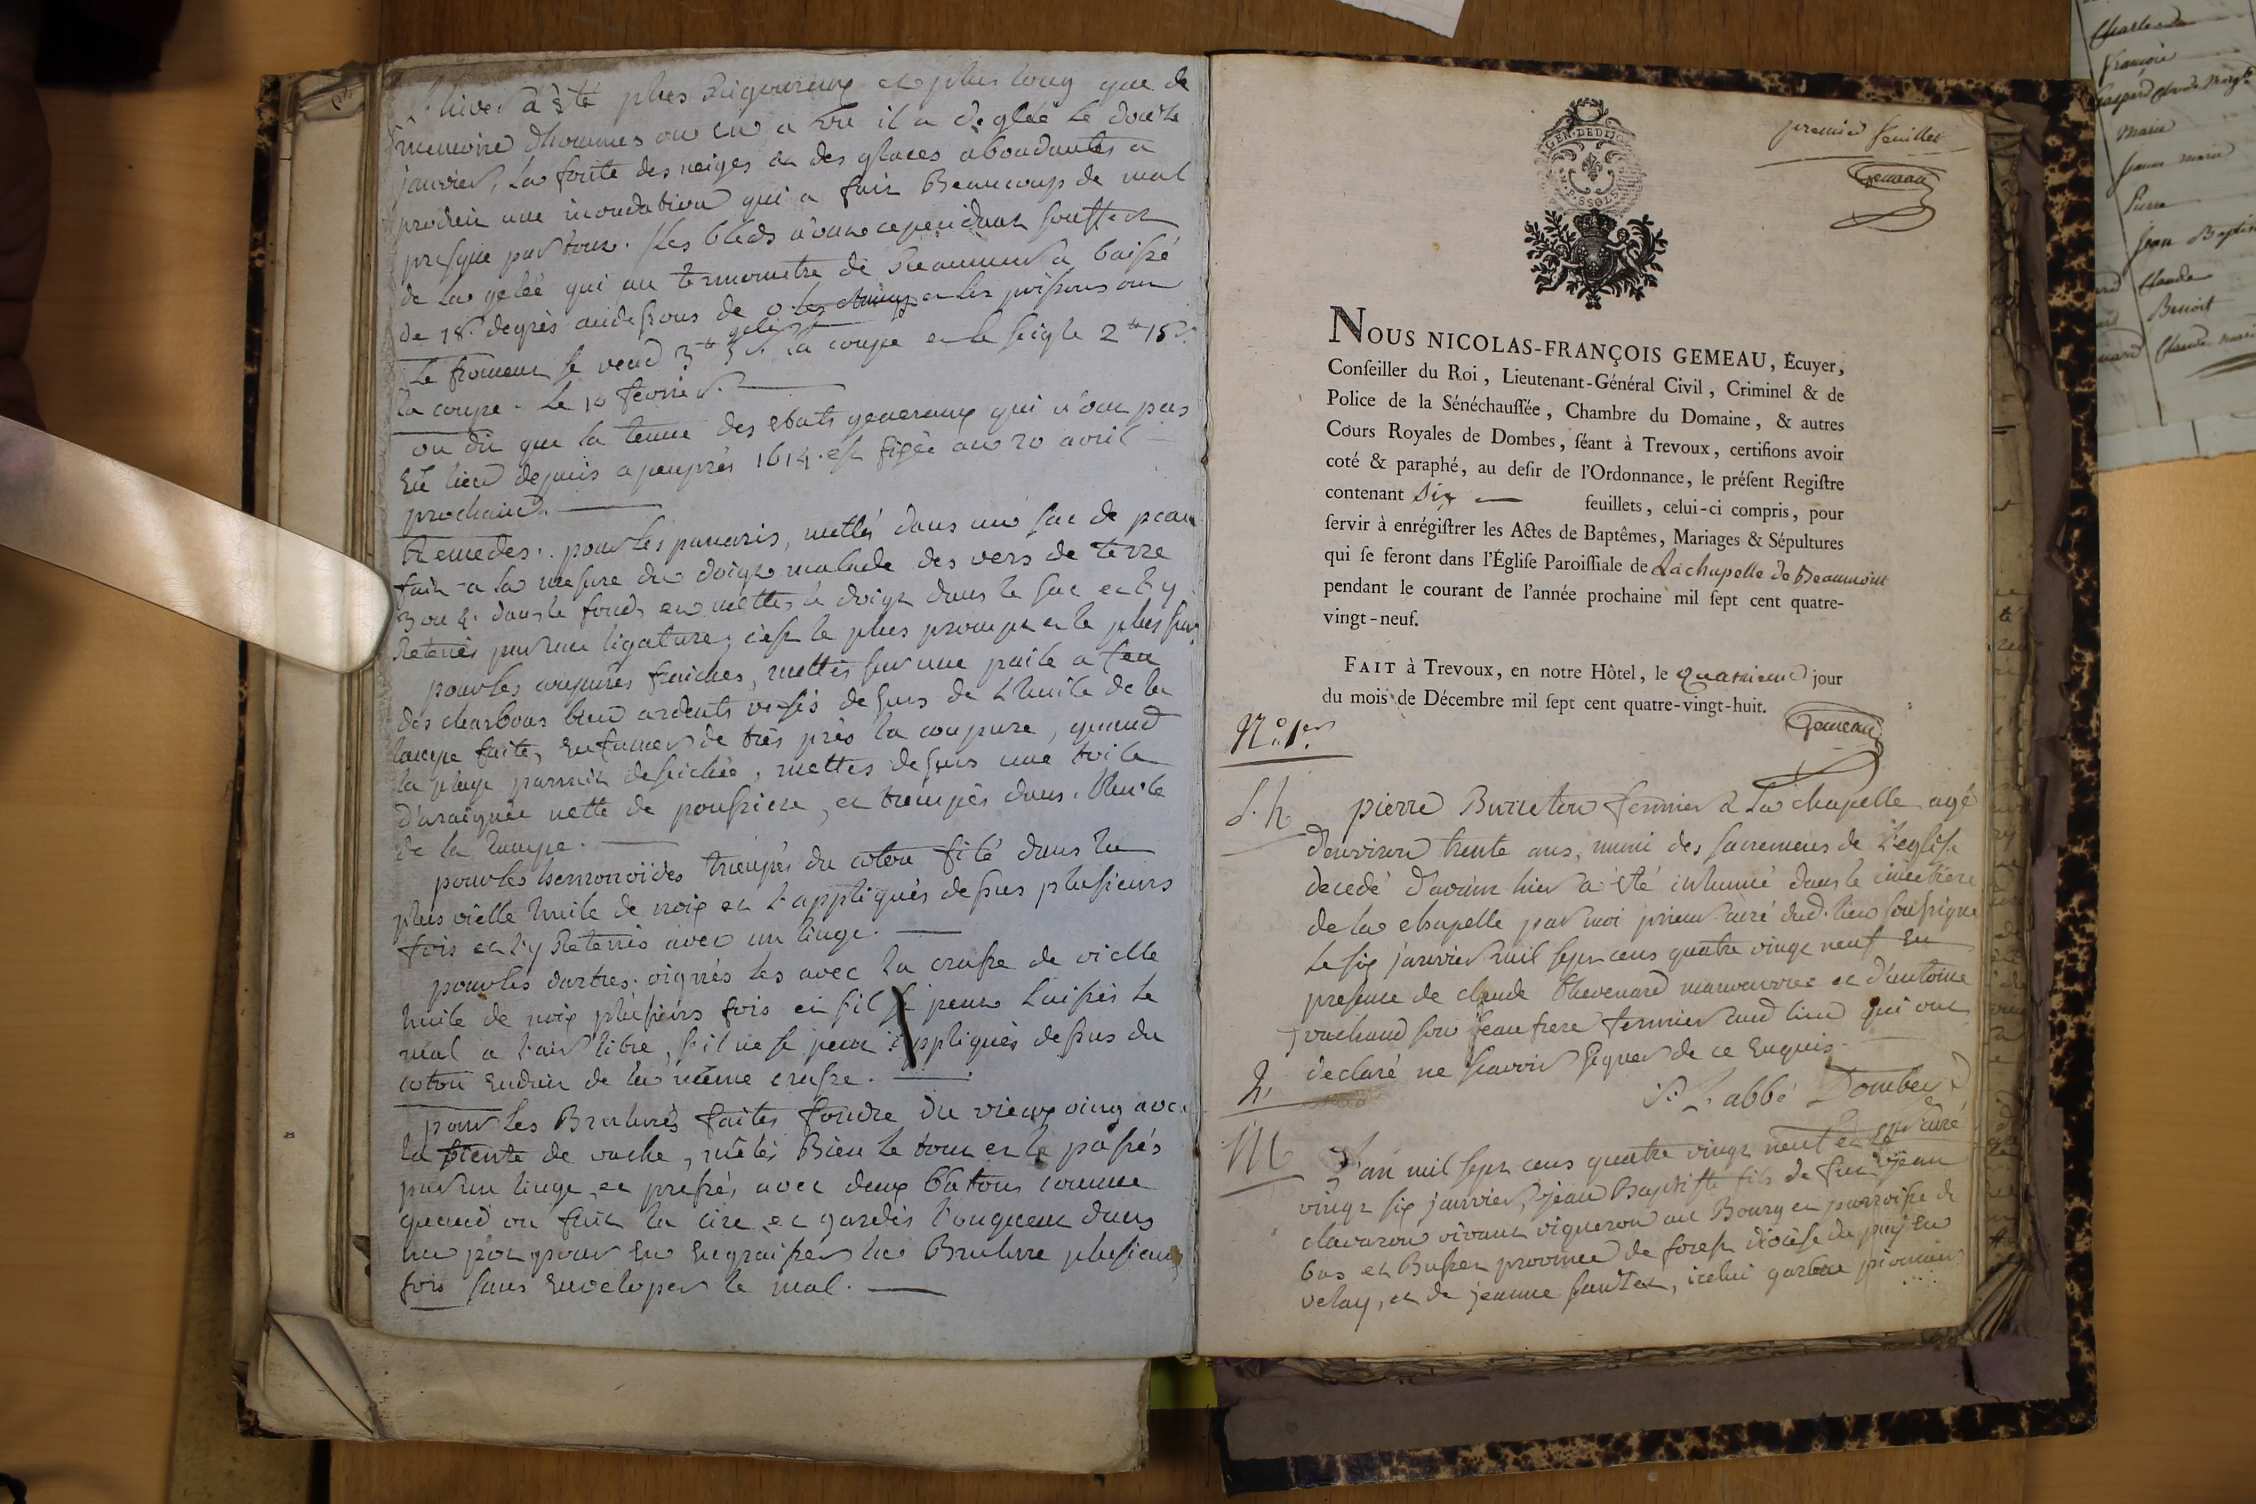 L'hiver à été plus Rigoureux et plus long que de
memoire d'hommes on en a vu il a degélé le douze
janvier, la fonte des neiges et des glaces abondantes a
produit une inondation qui a fait Beaucoup de mal
presque partout. Les bleds n'ont cependant souffert
de la gelée qui au termometre de Reaumur a baissé
de 18. degrès audessous de 0 et les poissons ont
gelés
Le froment se vend 3tt 5s. la coupe et le seigle 2tt 15s.
la coupe. Le 10 fevrier.
on dit que la tenue des etats generaux qui n'ont pas
Eû lieu depuis apeuprès 1614. est fixée au 20 avril
prochain.
Remedes. pour les panaris, mettés dans un sac de peau
fait a la mesure du doigt malade des vers de terre
3 ou 4. dans le fond, et mettés le doigt dans le sac et l'y
Retenés par une ligature; c'est le plus prompt et le plus sur
pour les coupures fraiches, mettés sur une paile a feu
des charbons bien ardents versés dessus de L'huile de la
lampe faite, enfumer de très près la coupure, quand
la playe parroit desseichée, mettes dessus une toile
d'araignée nette de poussiere, et trempés dans l'huile
de la lampe.
pour les hemorroïdes trempés du coton filé dans la
plus vielle huile de noix et l'appliqués dessus plusieurs
fois et l'y Retenés avec un linge.
pour les dartres. oignés les avec la crasse de vielle
huile de noix plusieurs fois et s'il se peut laissés le
mal a l'air libre, s'il ne se peut appliqués dessus du
coton Enduit de la même crasse.
pour les Brulures faites fondre du vieux oing avec
la fiente de vache, mêlés Bien le tout et le passés
par un linge, et pressés avec deux batons comme
quand on fait la cire et gardés l'onguent dans
un pot pour En Engraisser la Brulure plusieurs
fois sans enveloper le mal.
premier feuillet
Gemeau
NOUS NICOLAS-FRANÇOIS GEMEAU, Écuyer,
Conseiller du Roi, Lieutenant-Général Civil, Criminel & de
Police de la Sénéchaussée, Chambre du Domaine, & autres
Cours Royales de Dombes, séant à Trevoux, certifions avoir
coté & paraphé, au desir de l'Ordonnance, le présent Registre
contenant Six feuillets, celui-ci compris, pour
servir à enrégistrer les Actes de Baptêmes, Mariages & Sépultures
qui se feront dans l'Église Paroissiale de Lachapelle de Beaumont
pendant le courant de l'année prochaine mil sept cent quatre-
vingt-neuf.
FAIT à Trevoux, en notre Hôtel, le quatrieme jour
du mois de Décembre mil sept cent quatre-vingt-huit.
Gemeau
N.o 1er
S. h
pierre Burreton fermier a La chapelle agé
d'environ trente ans, muni des sacremens de L'eglise
decedé d'avant hier a été inhumé dans le cimetiere
de la chapelle par moi prieur curé dud. lieu soussigné
Le six janvier mil sept cens quatre vingt neuf En
presence de claude thevenard manouvrier et d'antoine
vouchaud son Beaufrere fermier aud lieu qui ont
declaré ne scavoir signer de ce Enquis.
L'abbé Dombey
pr curé
h
M
L'an mil sept cens quatre vingt neuf et le
vingt six janvier, jean Baptiste fils de feu jean
clavaron vivant vigneron au Bourg et parroisse de
bas et Basset province de forest diocèse du puy En
velay, et de jeanne
Charles
françoise
marie
jeanne marie
Pierre
Jean Baptiste
Claude
Benoit
Claude marie